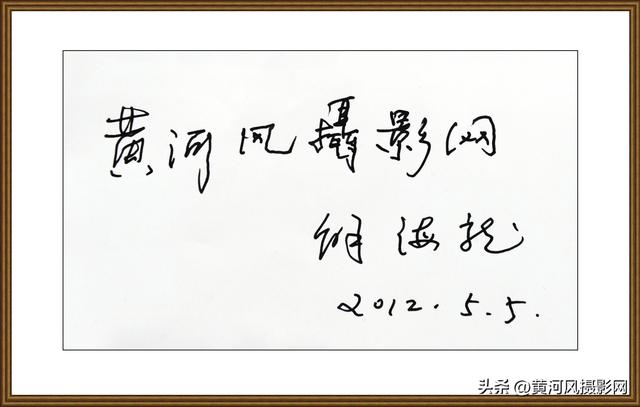 黄河风攝影网
解海龙
2012.5.5.
头条 @黄河风摄影网